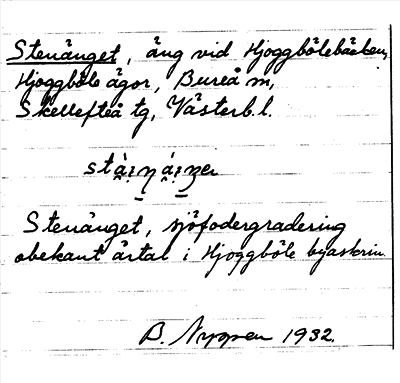 Stenänget, äng vid Hjoggbölebäcken,
Hjoggböle ägor, Bureå sn,
Skellefteå tg, Västerb. l.
Stenänget, sjöfodergradering
obekant årtal i Hjoggböle byaskrin.
B. Nygren 1932.